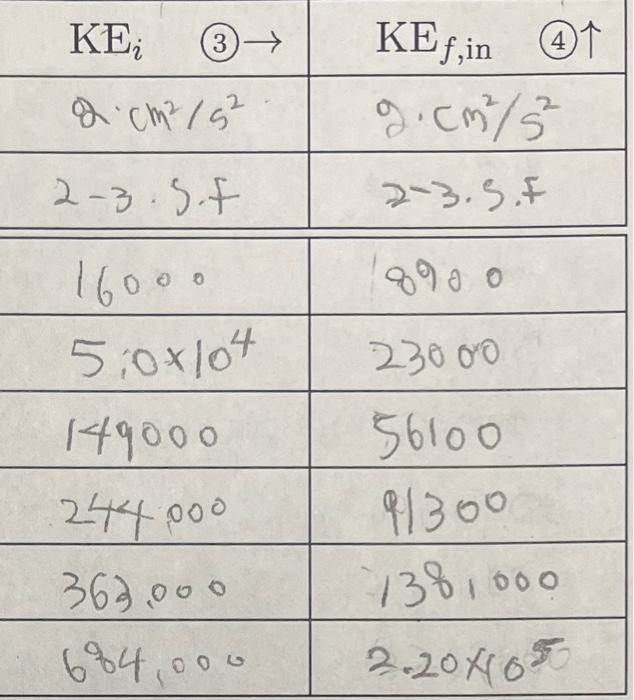 KEi ③→ KEf,in ④↑
g·cm²/s² g·cm²/s²
2-3.S.F 2-3.S.F
16000 8900
5.0×10⁴ 23000
149000 56100
244,000 91300
363,000 138,000
684,000 2.20×10⁵